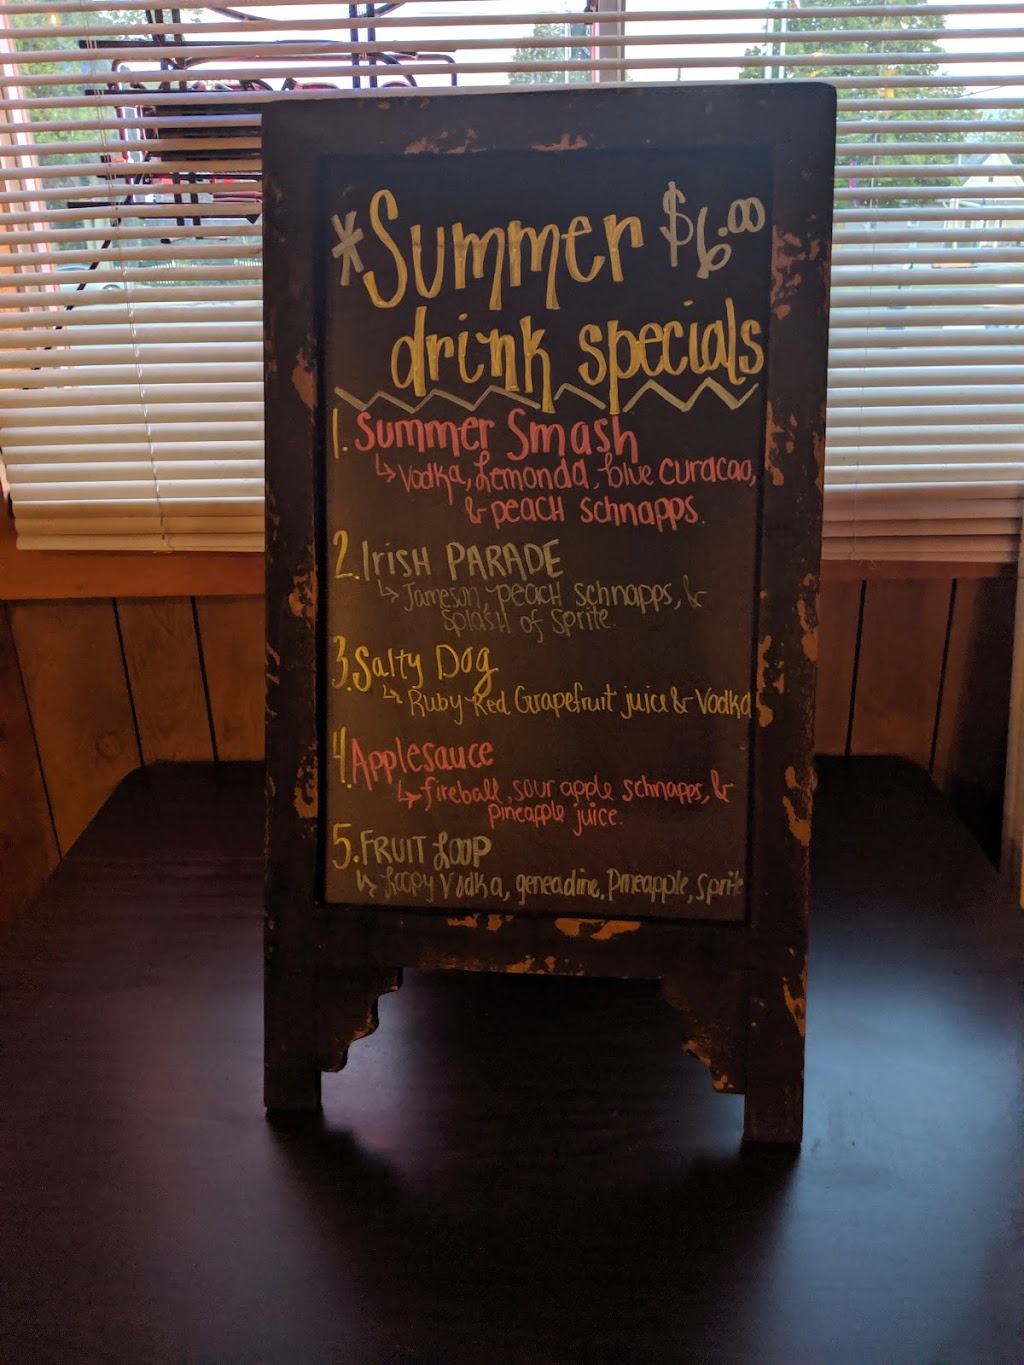 *Summer $6.00
drink specials
1. Summer Smash
↳ Vodka, Lemonda, blue curacao,
& peach schnapps.
2. Irish PARADE
↳ Jameson, peach schnapps, &
splash of sprite.
3. Salty Dog
↳ Ruby Red Grapefruit juice & Vodka
4. Applesauce
↳ fireball, sour apple schnapps, &
pineapple juice.
5. FRUIT LOOP
↳ Loopy Vodka, geneadine, Pineapple, Sprite